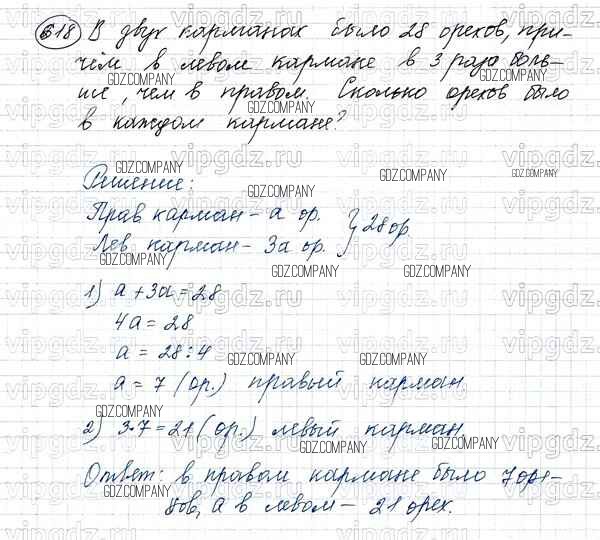 618 В двух карманах было 28 орехов, при-
чём в левом кармане в 3 раза боль-
ше, чем в правом. Сколько орехов было
в каждом кармане?
Решение:
Прав карман – а ор.
Лев карман – 3а ор. } 28 ор
1) а + 3а = 28
4а = 28
а = 28 : 4
а = 7 (ор.) правый карман
2) 3·7 = 21 (ор.) левый карман
Ответ: в правом кармане было 7 оре-
хов, а в левом – 21 орех.
GDZ.COMPANY
vipgdz.ru